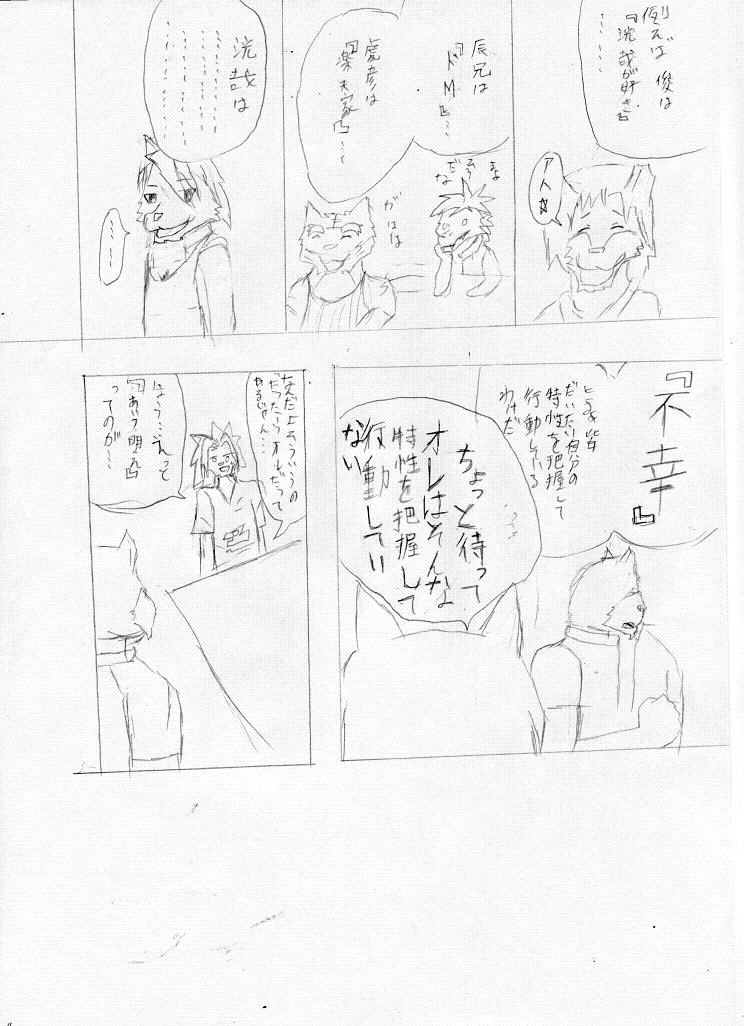 例えば 俊は
『洸哉が好き』
……
アハハ
辰兄は
『ドM』…
虎彦は
『楽天家』…
まぁ
そう
だな
がはは
洸哉は
…………
…………
…………
…………
『不幸』
とまあ皆
だいたい自分の
特性を把握して
行動している
わけだ
ちょっと待って
オレはそんな
特性を把握して
行動してい
ない
なんだよそういうの
だったらオレだって
あるじゃん…
ほう…
ってのが…